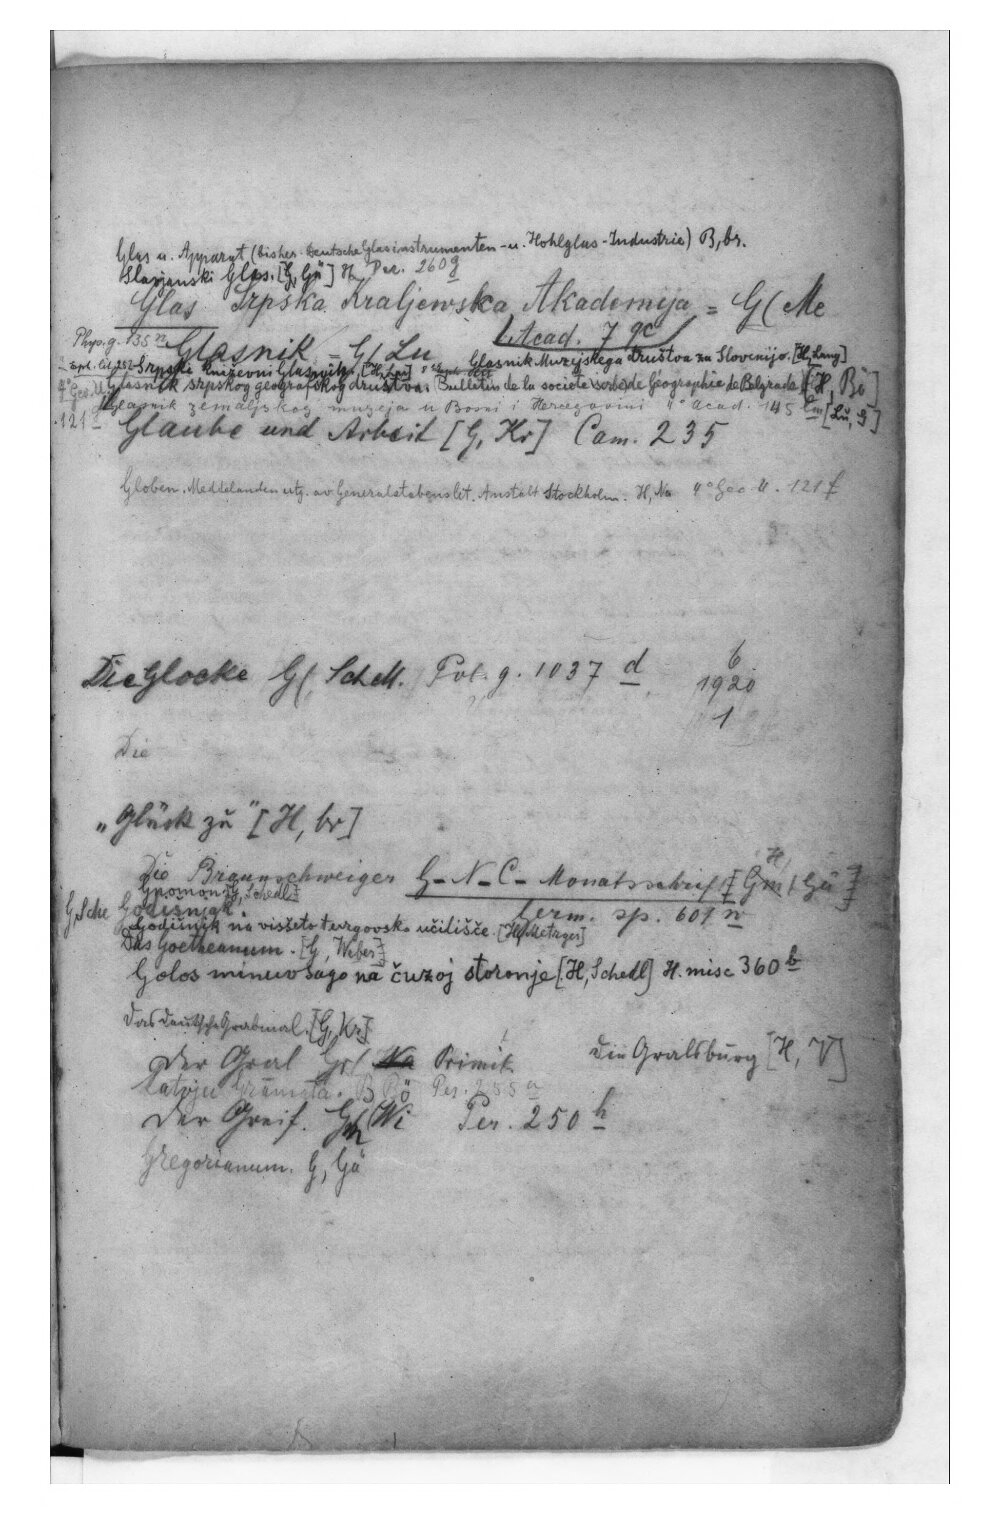 Glas u. Apparat (bisher Deutsche Glasinstrumenten- u. Hohlglas-Industrie) B, br.
Slavjanski Glas. [G, Gü] H Per. 260 g
Glas Srpska Kraljewska Akademija = G( Me
Acad. 7 gc
Phys. g. 135 n Glasnik = G( Lu
Srpski Kniževni Glasnik. Glasnik Muzejskega društva za Slovenijo. [H, Lang]
Glasnik srpskog geografskog društva. Bulletin de la societe serbe de Géographie de Belgrade [H, Bö]
4° Geo. U. 121 g
Glasnik zemaljskog muzeja u Bosni i Hercegovini 4° Acad. 145 [Lü, G]
Glaube und Arbeit [G, Kr] Cam. 235
Globen. Meddelanden utg. av Generalstabens lit. Anstalt Stockholm. H, Na 4° Geo U. 121 f
Die Glocke G( Sch M. Pol. g. 1037 d
6
1920
1
Die
„Glück zu" [H, br]
Die Braunschweiger G-N-C-Monatsschrift [Gm( Gü]
H,
Gnomon [G, Schedl]
Germ. sp. 607 n
G, Sche Godišnjak.
Godišnik na visšeto tergovsko učilišče. [H, Metzger]
Das Goetheanum. [G, Weber]
Golos minuvšago na čužoj storonje [H, Schedl] H. misc 360 b
Das deutsche Grabmal. [G, Kr]
Der Gral Gr( Na Primit. Die Gralsburg [H, V]
Latvju Grāmata. B Bö Per. 255 a
Der Greif. G( Wi Per. 250 h
Gregorianum. G, Gü